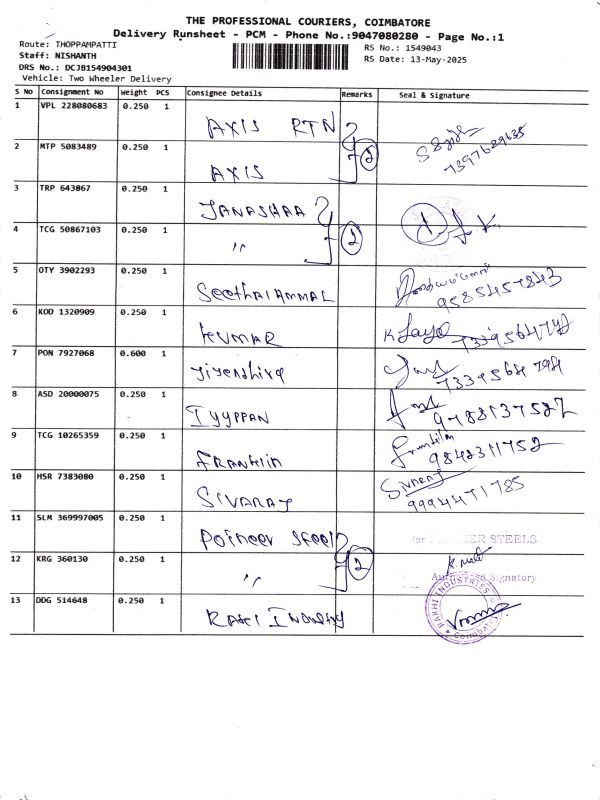 THE PROFESSIONAL COURIERS, COIMBATORE
Delivery Runsheet - PCM - Phone No.:9047080280 - Page No.:1
Route: THOPPAMPATTI
Staff: NISHANTH
DRS No.: DCJB154904301
Vehicle: Two Wheeler Delivery
RS No.: 1549043
RS Date: 13-May-2025
S No Consignment No Weight PCS Consignee Details Remarks Seal & Signature
1 VPL 228080683 0.250 1 AXIS RTN
2 MTP 5083489 0.250 1 AXIS 2 7397629635
3 TRP 643867 0.250 1 JANASHAA
4 TCG 50867103 0.250 1 " 2
5 OTY 3902293 0.250 1 Seethalammal 9585457843
6 KOD 1320909 0.250 1 KUMAR K Jaya 7339564792
7 PON 7927068 0.600 1 7339564794
8 ASD 20000075 0.250 1 IYYPPAN 9788137527
9 TCG 10265359 0.250 1 FRANKlin 9842311752
10 HSR 7383080 0.250 1 SIVARAJ 9994471785
11 SLM 369997005 0.250 1 Poineer Steel for PIONEER STEELS
12 KRG 360130 0.250 1 " 2 Authorised Signatory
13 DDG 514648 0.250 1 RAKI Industry
RAKHI INDUSTRIES
Coimbatore